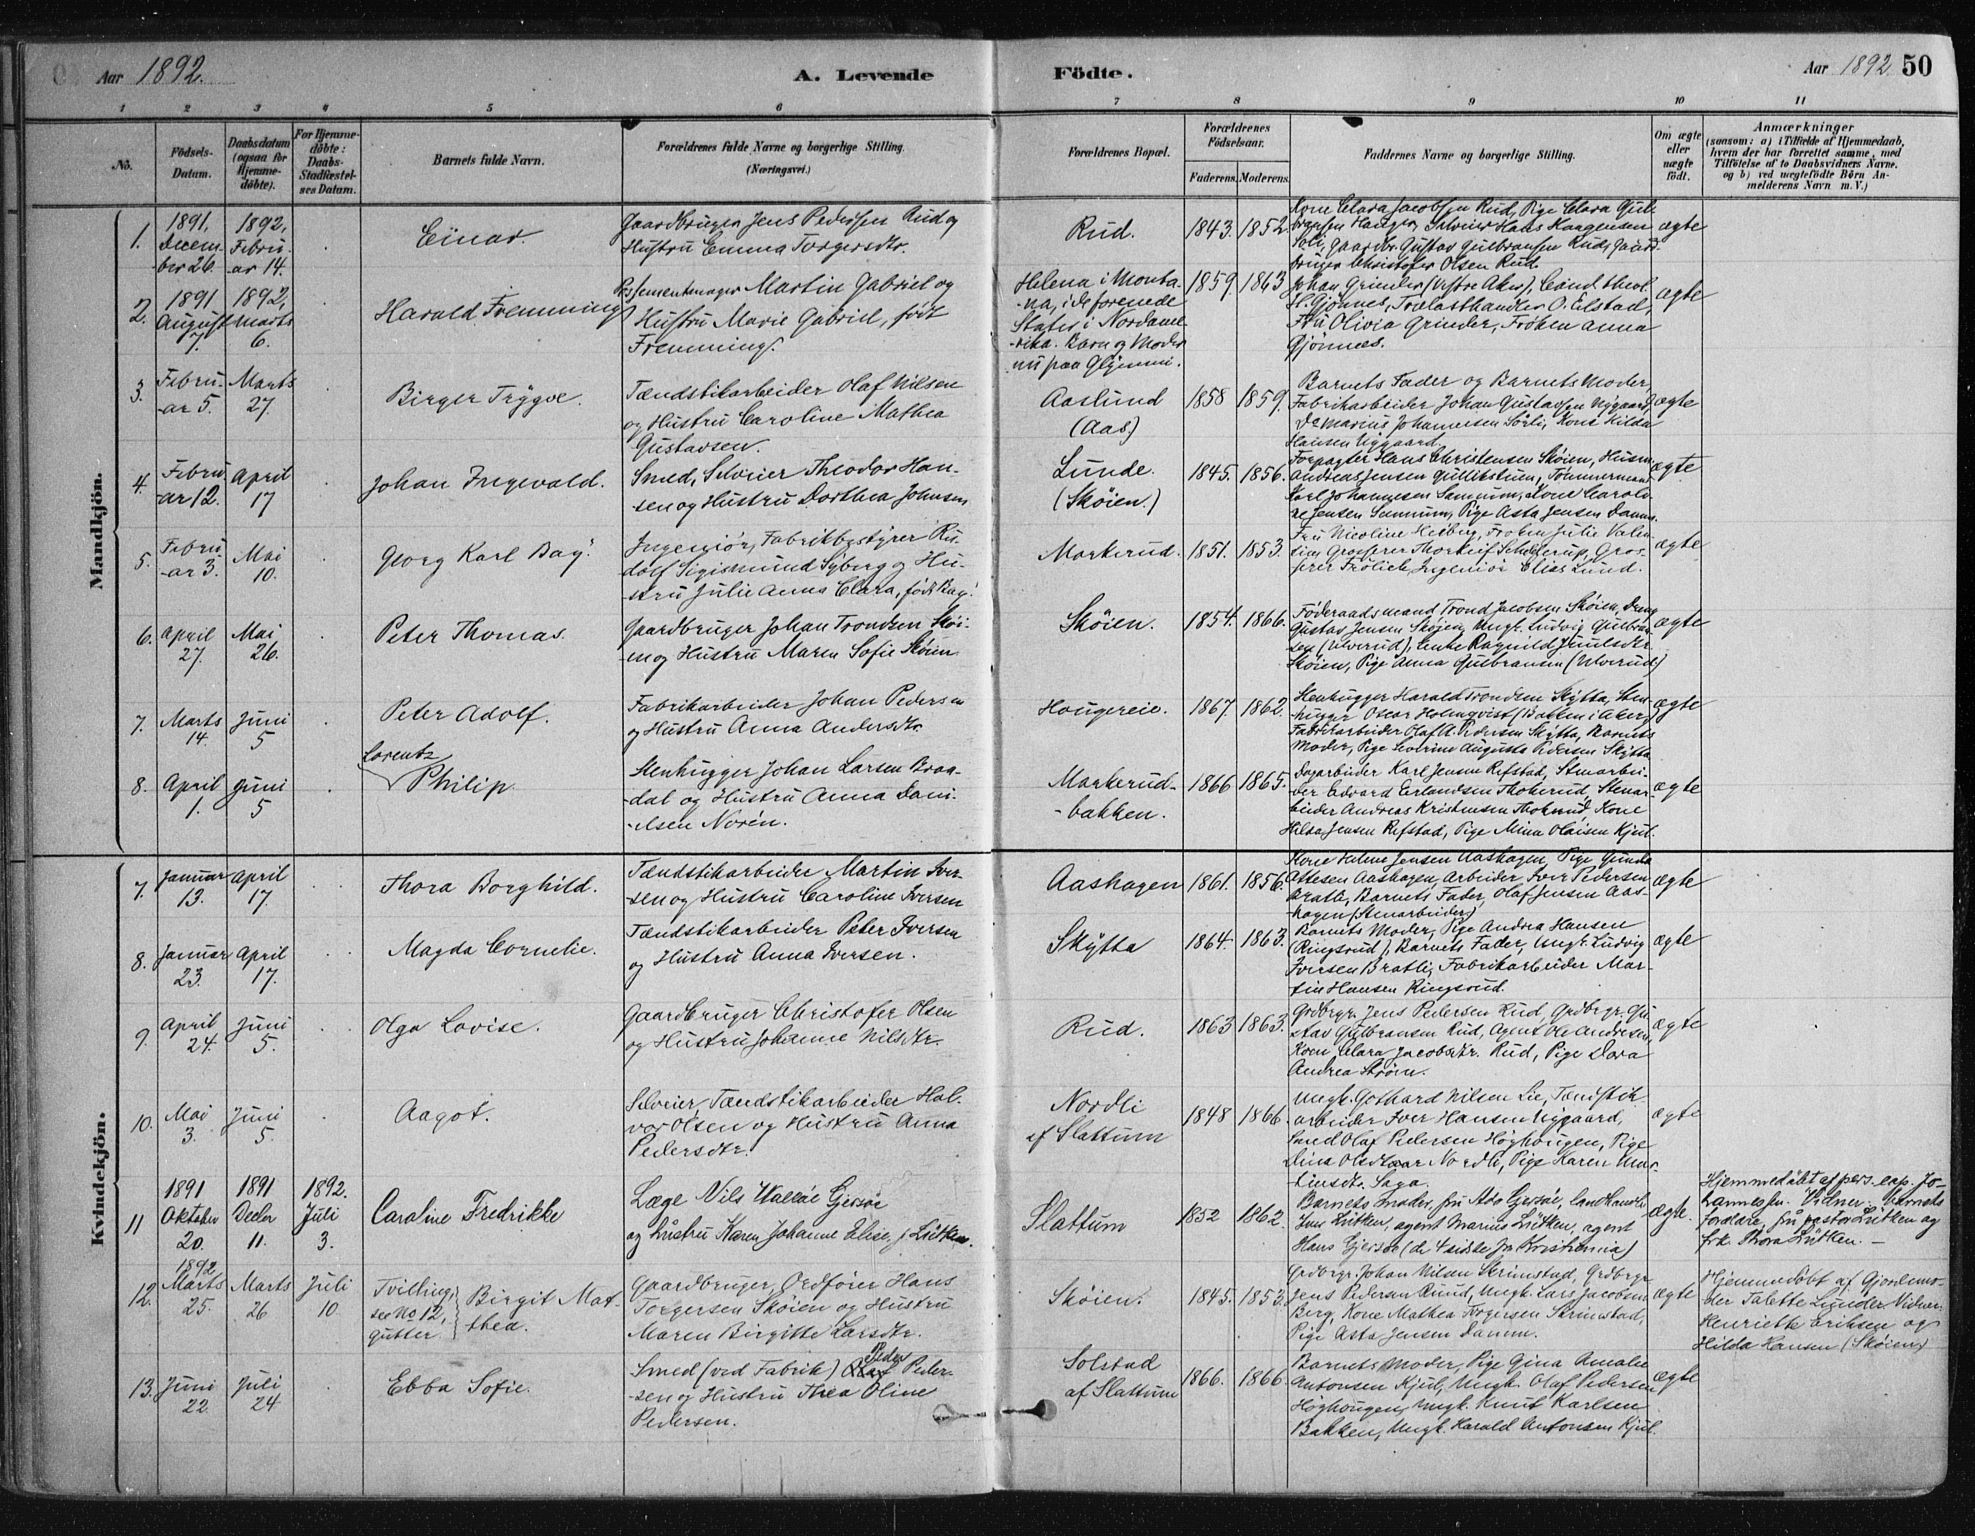 Aar 1892.
A. Levende
Födte.
Aar 1892 50
1 2 3 4 5 6 7 8 9 10 11
No.
Födsels-
Datum.
Daabsdatum
(ogsaa for
Hjemme-
döbte).
For Hjemme-
döbte:
Daabs-
Stadfæstel-
ses Datum.
Barnets fulde Navn.
Forældrenes fulde Navne og borgerlige Stilling.
(Næringsvei.)
Forældrenes Bopæl.
Forældrenes
Födselsaar.
Faderens. Moderens.
Faddernes Navne og borgerlige Stilling.
Om ægte
eller
uægte
födt.
Anmærkninger
(saasom: a) i Tilfælde af Hjemmedaab,
hvem der har forrettet samme, med
Tilföielse af to Daabsvidners Navne.
og b) ved uægtefödte Börn An-
melderens Navn m. V.)
Mandkjön.
1.
1891,
Decem-
ber 26.
1892,
Febru-
ar 14.
Einar.
Gaardbruger Jens Pedersen Rud og
Hustru Emma Torgersdtr.
Rud.
1843. 1852.
Kone Clara Jacobsen Rud, Pige Clara Gul-
bransen Hauger, Selveier Hans Haagensen
Soli, Gaardbr. Gustav Gulbransen Rud, Gaard-
bruger Christofer Olsen Rud.
ægte
2.
1891
August
7.
1892,
Marts
6.
Harald Fremming
Possementmager Martin Gabriel og
Hustru Marie Gabriel, født
Fremming.
Helena i Monta-
na, i de forenede
Stater i Nordame-
rika. Barn og Moder
nu paa
1859. 1863
Johan Grinder (Vestre Aker), Cand. theol
Gjönnes, Trælasthandler O. Eilstad,
Fru Olivia Grinder, Fröken Anna
Gjönnes.
ægte
3.
Febru-
ar 5.
Marts
27.
Birger Trygve.
Tændstikarbeider Olaf Nilsen
og Hustru Caroline Mathea
Gustavsen.
Aaslund
(Aas)
1858 1859.
Barnets Fader og Barnets Moder,
Fabrikarbeider Johan Gustavsen Nygaard,
Do Marius Johannesen Sörli, Kone Hilda
Hansen Nygaard.
ægte
4.
Febru-
ar 12.
April
17
Johan Ingevald.
Smed, Selveier Theodor Han-
sen og Hustru Dorthea Johnsen
Lunde.
(Sköien.)
1845. 1856.
Forpagter Hans Christensen Sköien, Husm.
Andreas Jensen Tömmermand
Karl Johannesen Samnum, Kone Caroli-
ne Jensen Samnum, Pige Asta Jensen Damm.
ægte
5.
Febru-
ar 3.
Mai
10.
Georg Karl Bay.
Ingeniör, Fabrikbestyrer Ru-
dolf Sigismund Syberg og Hu-
stru Julie Anna Clara, født Bay.
Markerud.
1851. 1853.
Fru Nicoline Heiberg, Fröken Julie Valen-
tin, Grosserer Thorleif Schjelderup, Gros-
serer Frölich, Ingeniör Elias Lund.
ægte
6.
April
27.
Mai
26.
Peter Thomas.
Gaardbruger Johan Trondsen Sköi-
en og Hustru Maren Sofie Sköien
Sköien.
1854. 1866.
Föderaadsmand Trond Jacobsen Sköien, Dreng
Gustav Jensen Sköien, Ungk. Ludvig Gulbran-
sen (Ulverud), Enke Ragnild Juulsdtr.
Sköien, Pige Anna Gulbransen (Ulverud)
ægte
7.
Marts
14.
Juni
5
Peter Adolf.
Fabrikarbeider Johan Pedersen
og Hustru Anna Andersdtr.
Haugereie.
1867. 1862.
Stenhugger Harald Trondsen Skytta, Sten-
hugger Oscar Holmqvist (Bakken i Aker)
Fabrikarbeider Olaf A. Pedersen Skytta, Barnets
Moder, Pige Severine Augusta Pedersen Skytta
ægte
8.
April
1.
Juni
5
Lorentz
Philip
Stenhugger Johan Larsen Braa-
dal og Hustru Anna Dani-
elsen Norén.
Markerud-
bakken.
1866 1865.
Dagarbeider Karl Jensen Refstad, Stenarbei-
der Edvard Erlandsen Thokerud, Stenar-
beider Andreas Kristensen Thokerud, Kone
Hilda Jensen Refstad, Pige Mina Olaisen Kjul.
ægte
Kvindekjön.
7.
Januar
13.
April
17.
Thora Borghild.
Tændstikarbeider Martin Iver-
sen og Hustru Caroline Iversen
Aashagen
1861. 1856.
Kone Helene Jensen Aashagen, Pige Gunda
Attesen Aashagen, Arbeider Iver Pedersen
Bratli, Barnets Fader, Olaf Jensen Aas-
hagen (Stenarbeider)
ægte
8.
Januar
23.
April
17.
Magda Cornelie.
Tændstikarbeider Peter Iversen
og Hustru Anna Iversen.
Skytta
1864. 1863.
Barnets Moder, Pige Andrea Hansen
(Ringsrud), Barnets Fader, Ungk. Ludvig
Iversen Bratli, Fabrikarbeider Mar-
tin Hansen Ringsrud.
ægte
9.
April
24.
Juni
5.
Olga Lovise.
Gaardbruger Christofer Olsen
og Hustru Johanne Nilsdtr.
Rud.
1863 1863.
Grdbrgr. Jens Pedersen Rud, Grdbrgr. Gu-
stav Gulbransen Rud, Agent Ole Andresen,
Koen Clara Jacobsdtr. Rud, Pige Dora
Andrea Ström.
ægte
10.
Mai
3.
Juni
5.
Aagot.
Selveier, Tændstikarbeider Hal-
vor Olsen og Hustru Anna
Pedersdtr.
Nordli
af Slattum
1848 1866.
Ungk. Gothard Nilsen Lie, Tændstik-
arbeider Iver Hansen Nygaard,
Olaf Pedersen Höyhougen, Pige
Dina Olsdtr. Nordli, Pige Karen Mar-
tinsdtr. Saga.
ægte
11
1891
Oktober
20.
1891
Decbr
11.
1892.
Juli
3.
Caroline Fredrikke
Læge Nils Wallöe Gjersöe
og Hustru Karen Johanne Elise f. Lütken.
Slattum
1852 1862.
Barnets moder, fru Ada Gjersöe,
Jens Lütken, agent Marius Lütken, agent
Hans Gjersöe (de 4 sidste fra Kristiania)
ægte.
Hjemmedöbt af pers. cap. Jo-
hannessen. Vidner: Barnets
forældre, fru pastor Lütken og
frk. Thora Lütken. –
12.
1892
Marts
25.
Marts
26
Juli
10.
Tvilling,
see No 12,
gutter
Birgit Mat-
thea.
Gaardbruger, Ordförer Hans
Torgersen Sköien og Hustru
Maren Birgitte Larsdtr.
Sköien.
1845. 1853.
Grdbrgr. Johan Nilsen Skrimstad, Grdbrgr.
Jens Pedersen Ruud, Ungk. Lars Jacobsen
Berg, Kone Mathea Torgersen Skrimstad,
Pige Asta Jensen Damm.
ægte
Hjemmedöbt af Gjordemo-
der Talette Lunder. Vidner
Henriette Eriksen og
Hilda Hansen (Sköien)
13.
Juni
22.
Juli
24
Ebba Sofie.
Peder
Smed (ved Fabrik) Olaf Peder-
sen og Hustru Thea Oline
Pedersen.
Solstad
af Slattum
1866. 1866.
Barnets Moder, Pige Gina Amalie
Antonsen Kjul, Ungk. Olaf Pedersen
Höyhougen, Ungk. Knut Karlsen
Bakken, Ungk. Harald Antonsen Kjul.
ægte